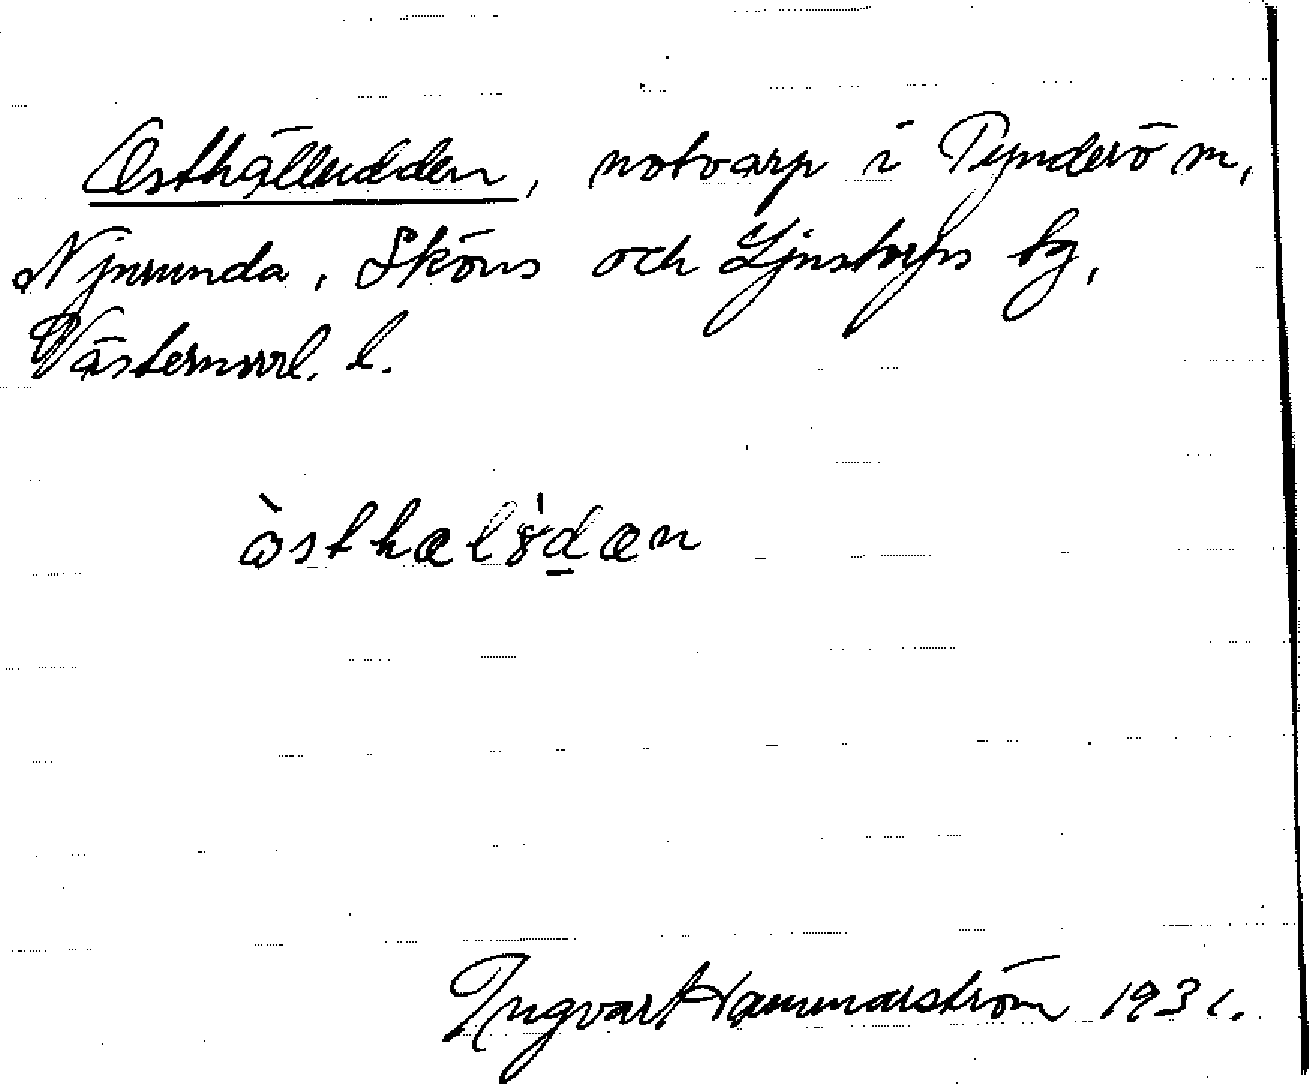 Östhälludden, notvarp i Tynderö m,
Njurunda, Sköns och Ljustorps tg,
Västernorrl. l.
Ingvar Hammarström 1931.